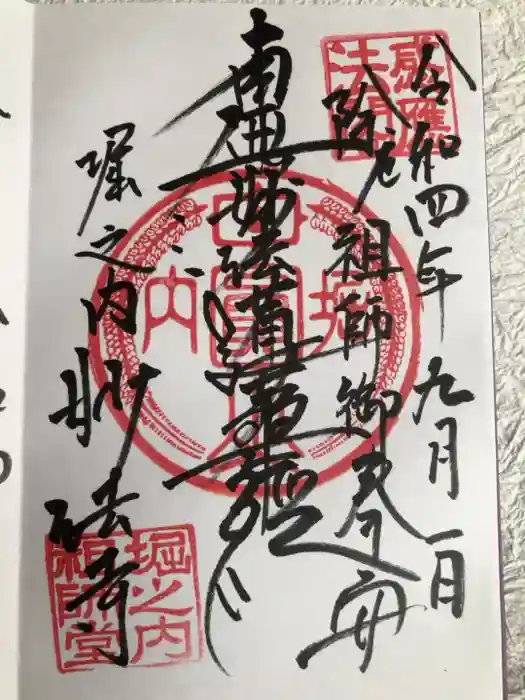 令和四年九月一日
除厄祖師御奉安
南無妙法蓮華経
堀之内 妙法寺
感應
堀之内
祖師堂